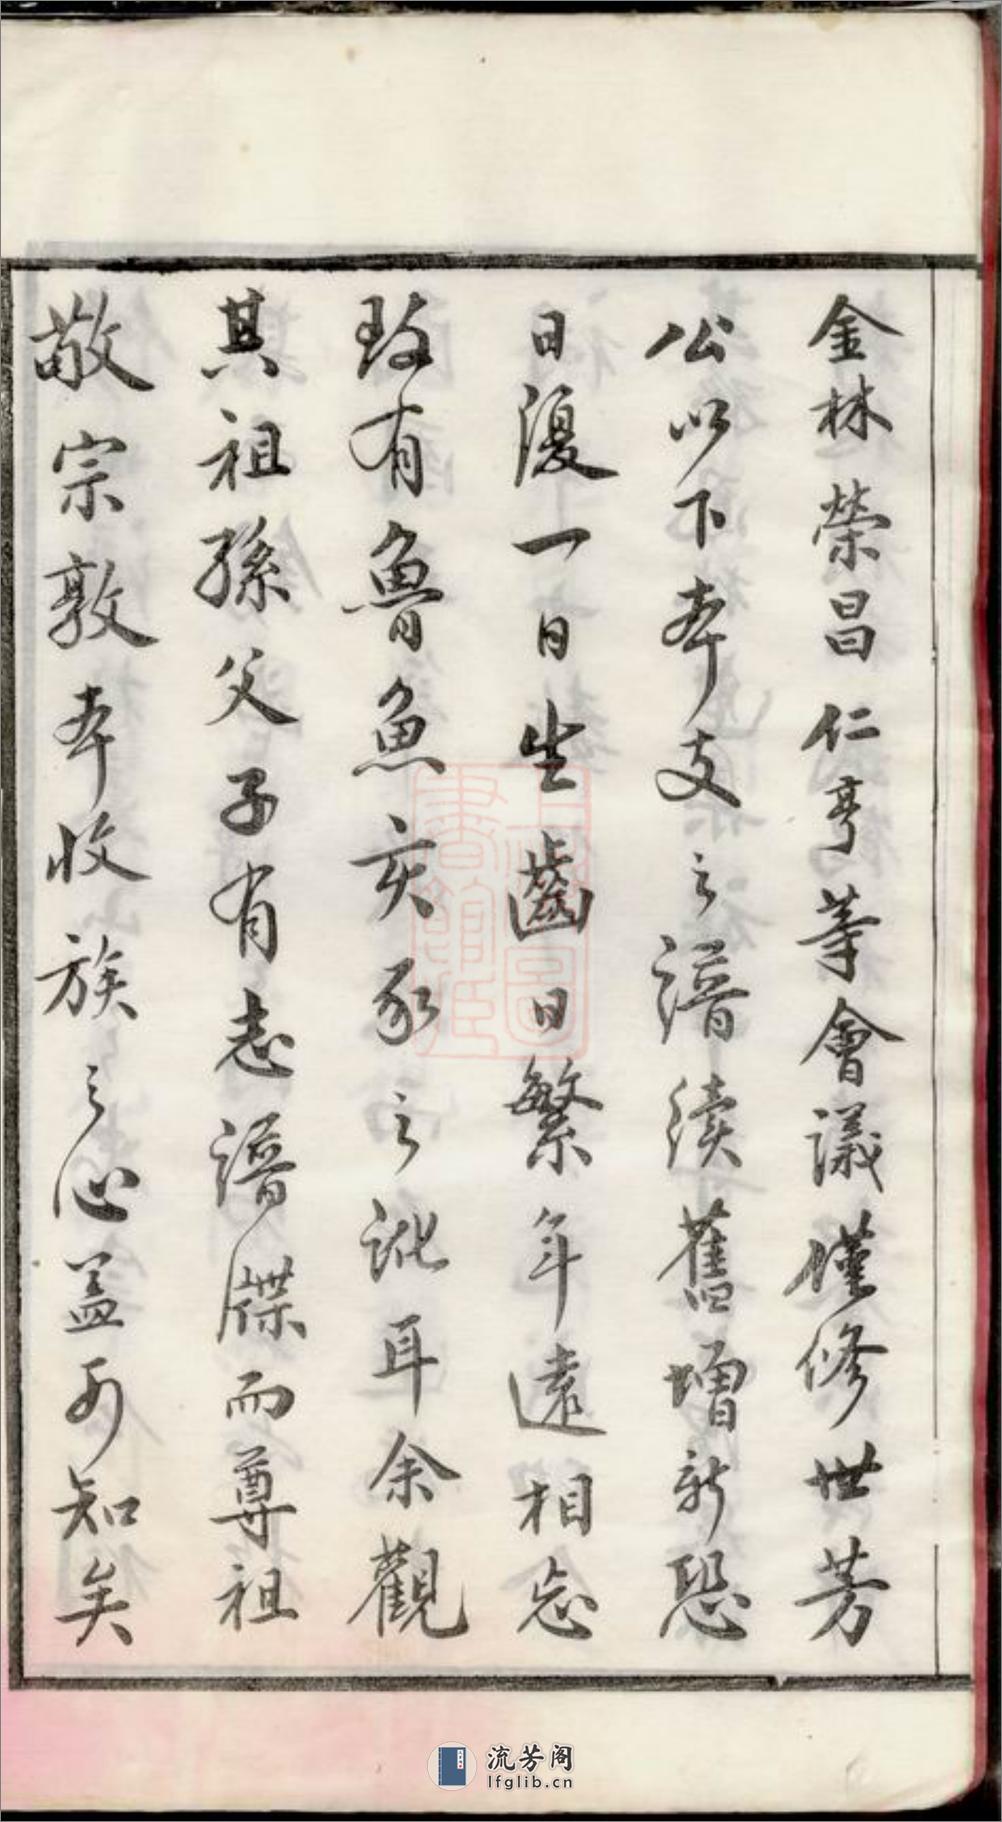 金林榮昌仁亨等會議僅修世芳
公以下本支之譜續舊增新恐
日復一日生齒日繁年年遠相忘
致有魯魚亥豕之訛耳余觀
其祖孫父子有志譜牒而尊祖
敬宗敦本收族之心盖可知矣
上海圖書館藏
流芳阁
lfglib.cn